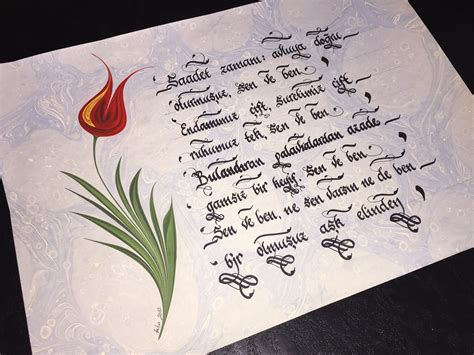 Saadet zamanı: avluya doğru
oturmuşuz, sen ve ben.
Endamımız çift, suretimiz çift
ruhumuz tek, sen ve ben.
Bulandıran palavralardan azade
gamsız bir keyif, sen ve ben.
Sen ve ben, ne sen varsın ne de ben
bir olmuşuz aşk elinden